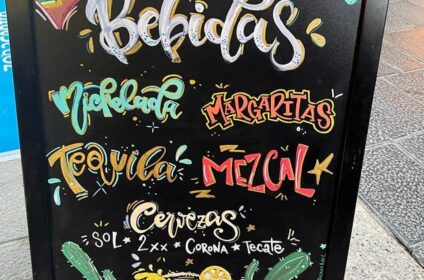 Bebidas
Michelada
MARGARITAS
Tequila
MEZCAL
Cervezas
SOL * 2xx * CORONA * Tecate